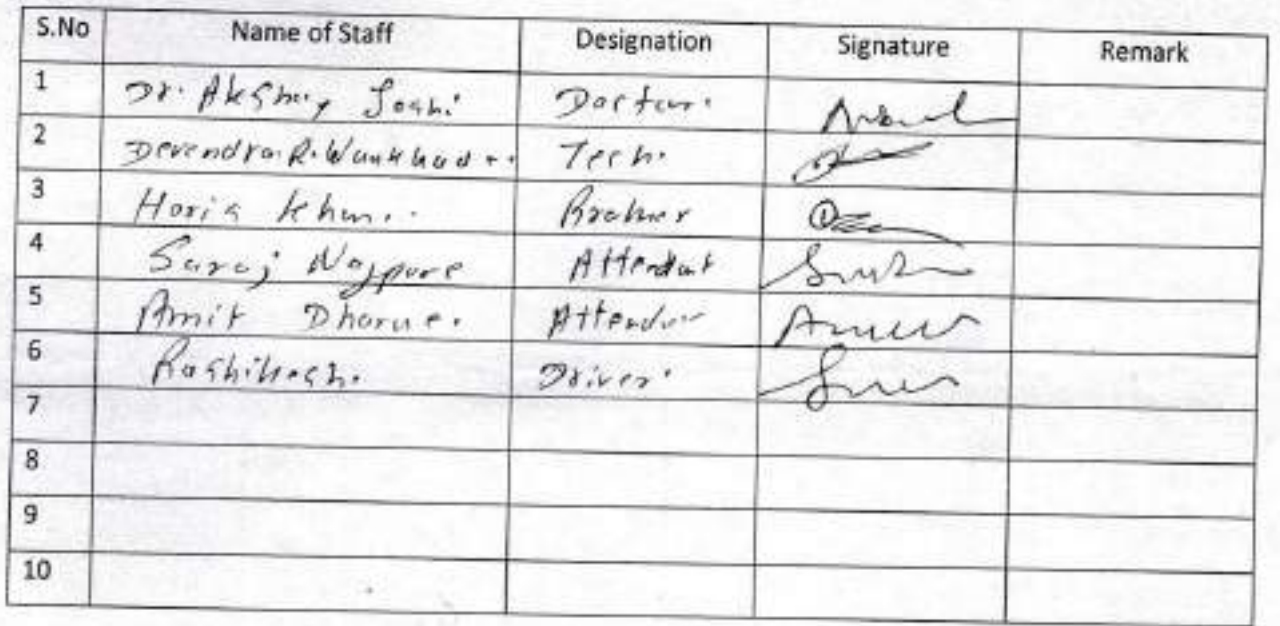 S.No Name of Staff Designation Signature Remark
1 Dr. Akshay Joshi Doctor.
2 Devendra.R.Wankhade.. Tech.
3 Haris Khan..
4 Suraj Nagpure Attendant
5 Amit Dharne. Attendant
6 Driver.
7
8
9
10